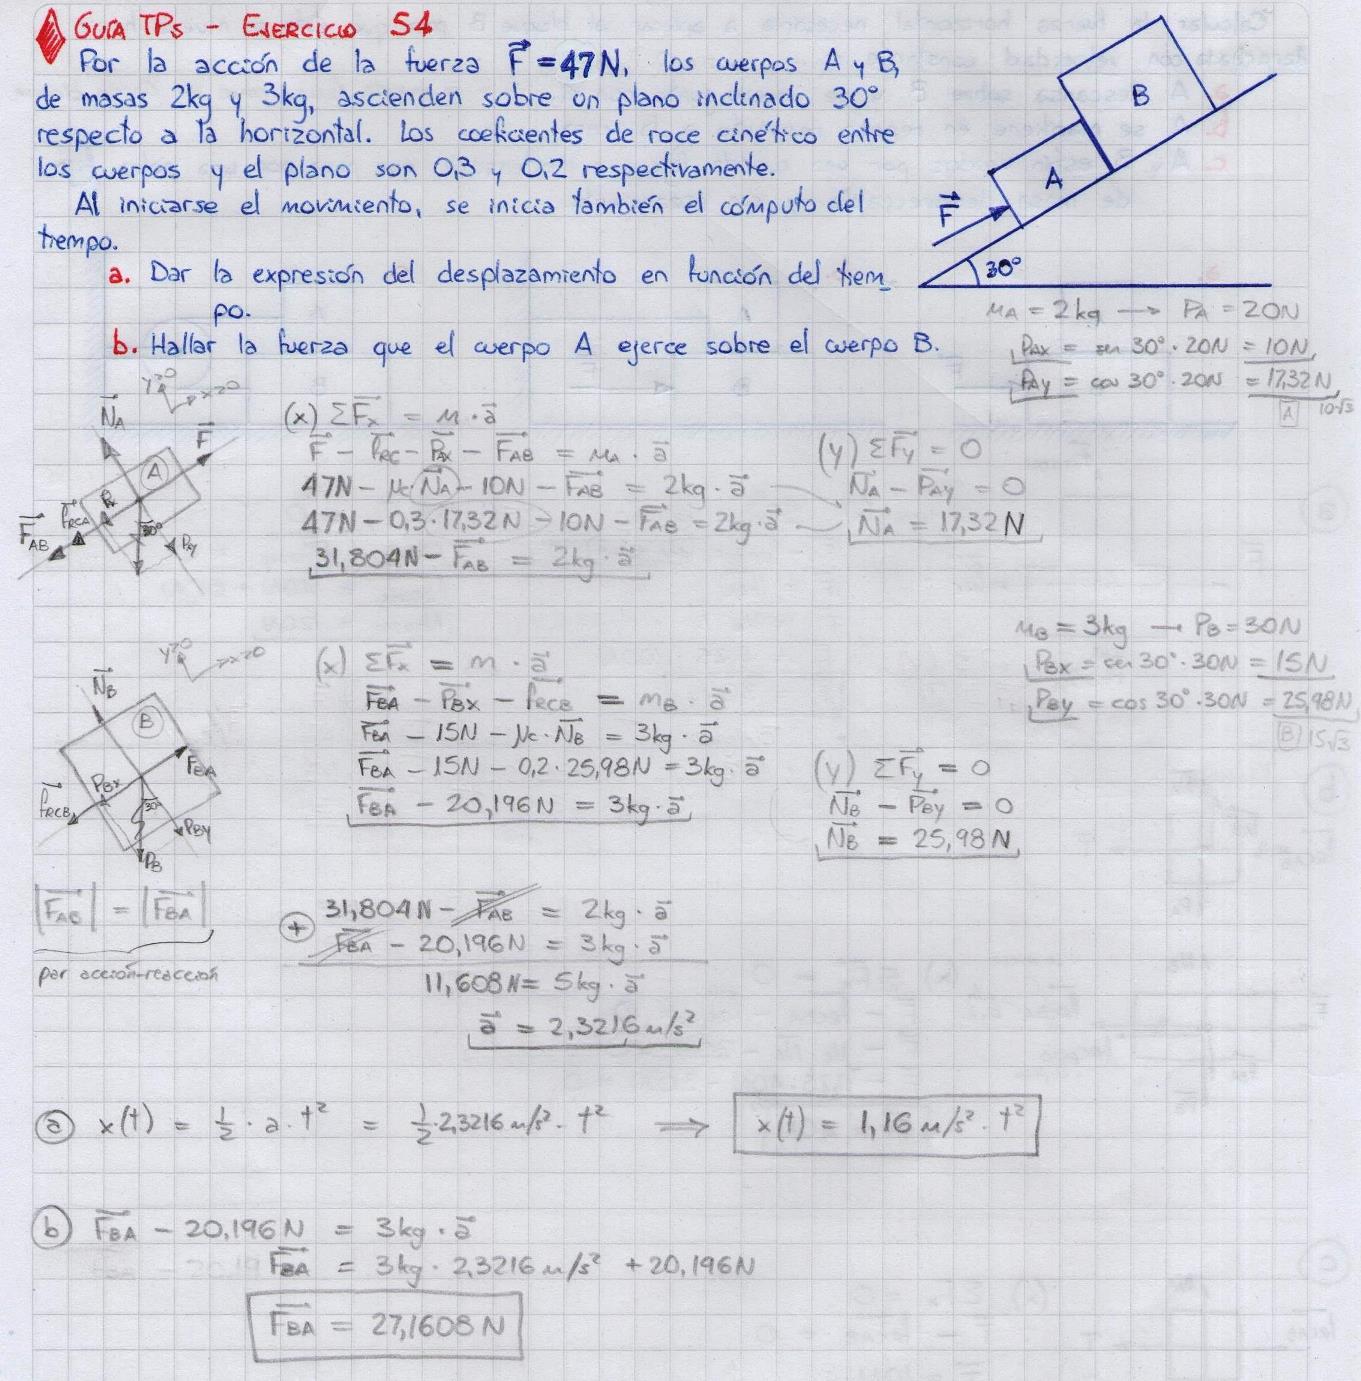 GUÍA TPs - EJERCICIO 54
Por la acción de la fuerza F = 47N, los cuerpos A y B,
de masas 2kg y 3kg, ascienden sobre un plano inclinado 30°
respecto a la horizontal. Los coeficientes de roce cinético entre
los cuerpos y el plano son 0,3 y 0,2 respectivamente.
Al iniciarse el movimiento, se inicia también el cómputo del
tiempo.
a. Dar la expresión del desplazamiento en función del tiem_
po.
b. Hallar la fuerza que el cuerpo A ejerce sobre el cuerpo B.
B
A
F
30°
mA = 2kg → PA = 20N
PAX = sen 30° · 20N = 10N
PAY = cos 30° · 20N = 17,32N
A 10√3
Y>0
x>0
NA
F
A
FRCA
FAB
30°
PAY
(x) ΣFx = m · a
F - FRC - PAX - FAB = mA · a
47N - μc · NA - 10N - FAB = 2kg · a
47N - 0,3 · 17,32N - 10N - FAB = 2kg · a
31,804N - FAB = 2kg · a
(y) ΣFy = 0
NA - PAY = 0
NA = 17,32N
mB = 3kg → PB = 30N
PBX = sen 30° · 30N = 15N
PBY = cos 30° · 30N = 25,98N
B 15√3
Y>0
x>0
NB
B
FBA
PBX
FRCB
30°
PBY
PB
(x) ΣFx = m · a
FBA - PBX - FRCB = mB · a
FBA - 15N - μc · NB = 3kg · a
FBA - 15N - 0,2 · 25,98N = 3kg · a
FBA - 20,196N = 3kg · a
(y) ΣFy = 0
NB - PBY = 0
NB = 25,98N
|FAB| = |FBA|
par acción-reacción
+ 31,804N - FAB = 2kg · a
FBA - 20,196N = 3kg · a
11,608N = 5kg · a
a = 2,3216 m/s²
a x(t) = 1/2 · a · t² = 1/2 · 2,3216 m/s² · t² ⟹ x(t) = 1,16 m/s² · t²
b FBA - 20,196N = 3kg · a
FBA = 3kg · 2,3216 m/s² + 20,196N
FBA = 27,1608N